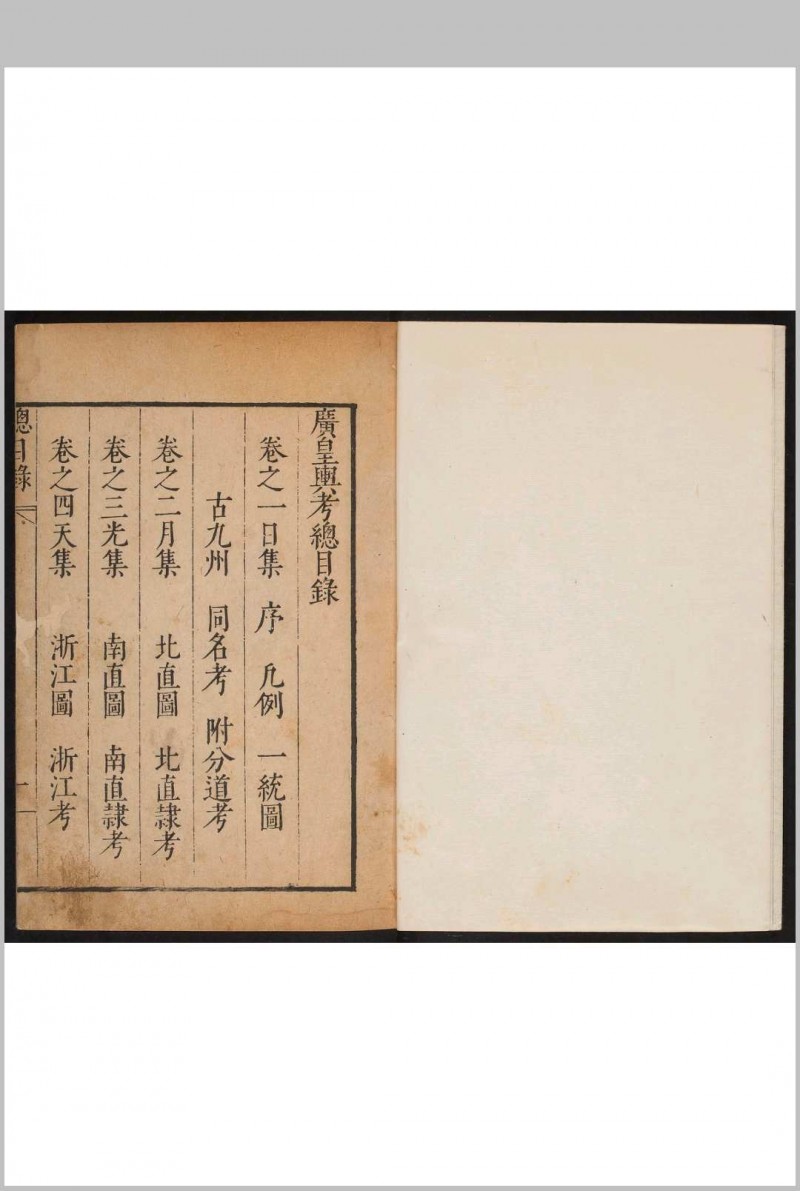 廣皇輿考總目錄
卷之一日集　序　凡例　一統圖
古九州　同名考　附分道考
卷之二月集　北直圖　北直隸考
卷之三光集　南直圖　南直隸考
卷之四天集　浙江圖　浙江考
總目錄　一